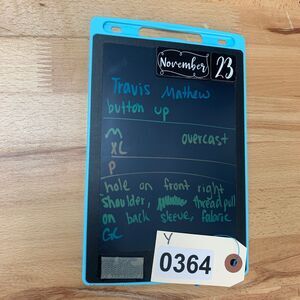 November 23
Travis Mathew
button up
M overcast
XL
P
hole on front right
shoulder, thread pull
on back sleeve, fabric
GC
Y
0364